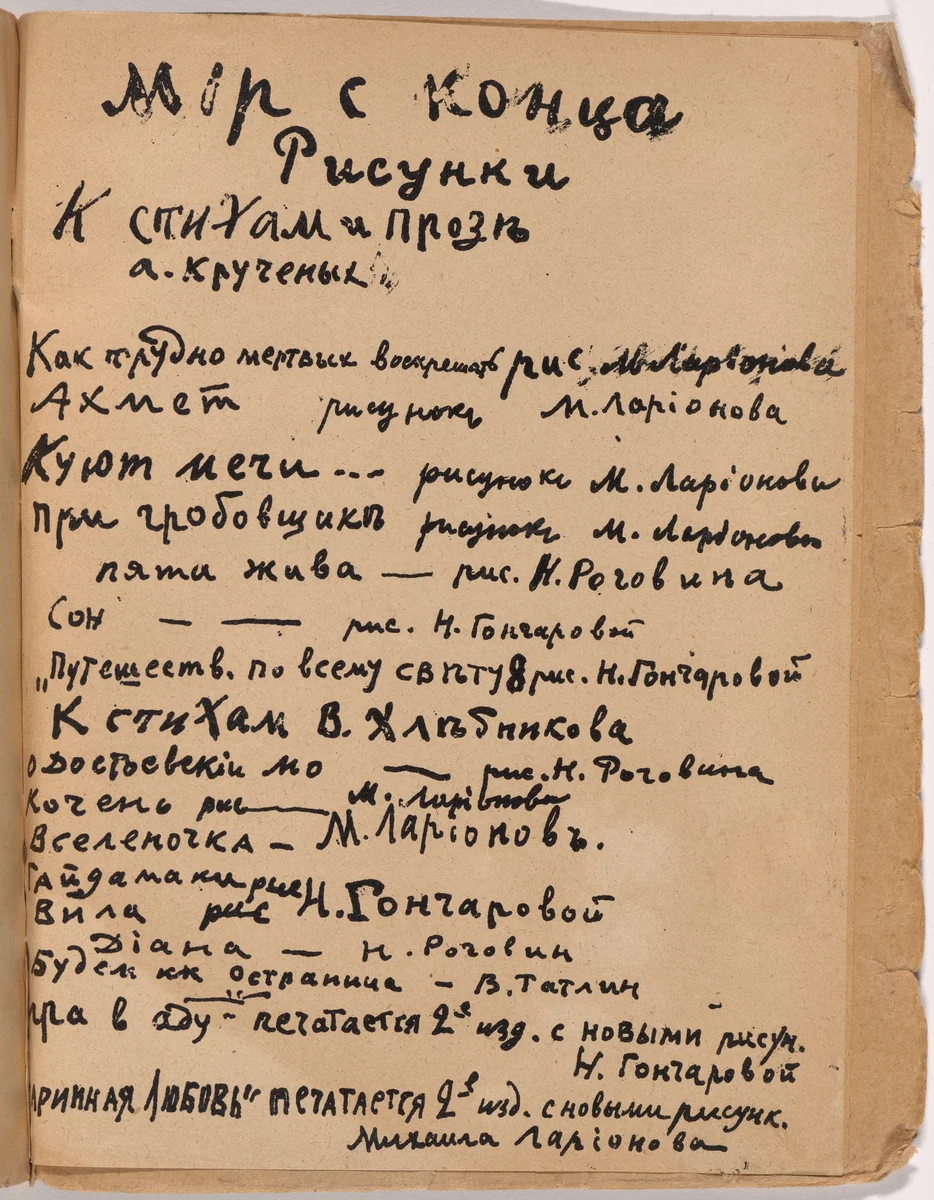 Мір с конца
Рисунки
К стихам и прозѣ
а. крученых
Как трудно мертвых воскрешать рис М Ларіонова
Ахмет рисунокъ М. Ларіонова
Куют мечи --- рисунокъ М. Ларіонова
При гробовщикѣ рисунокъ М. Ларіонова
пяти жива — рис. Н. Роговина
Сон — — рис. Н. Гончаровой
„Путешеств. по всему свѣту 8 рис. Н. Гончаровой
К стихам В. Хлѣбникова
о Достоевскій мо — рис. Н. Роговина
Кочень рис — М. Ларіонова
Вселеночка — М. Ларіоновъ.
Гайдамаки рис
Вила рис Н. Гончаровой
Діана — Н. Роговин
Остраница — В. Татлин
гра в аду" печатается 2е изд. с новыми рисун.
Н. Гончаровой
аринная Любовь" печатается 2е изд. с новыми рисунк.
Михаила Ларіонова